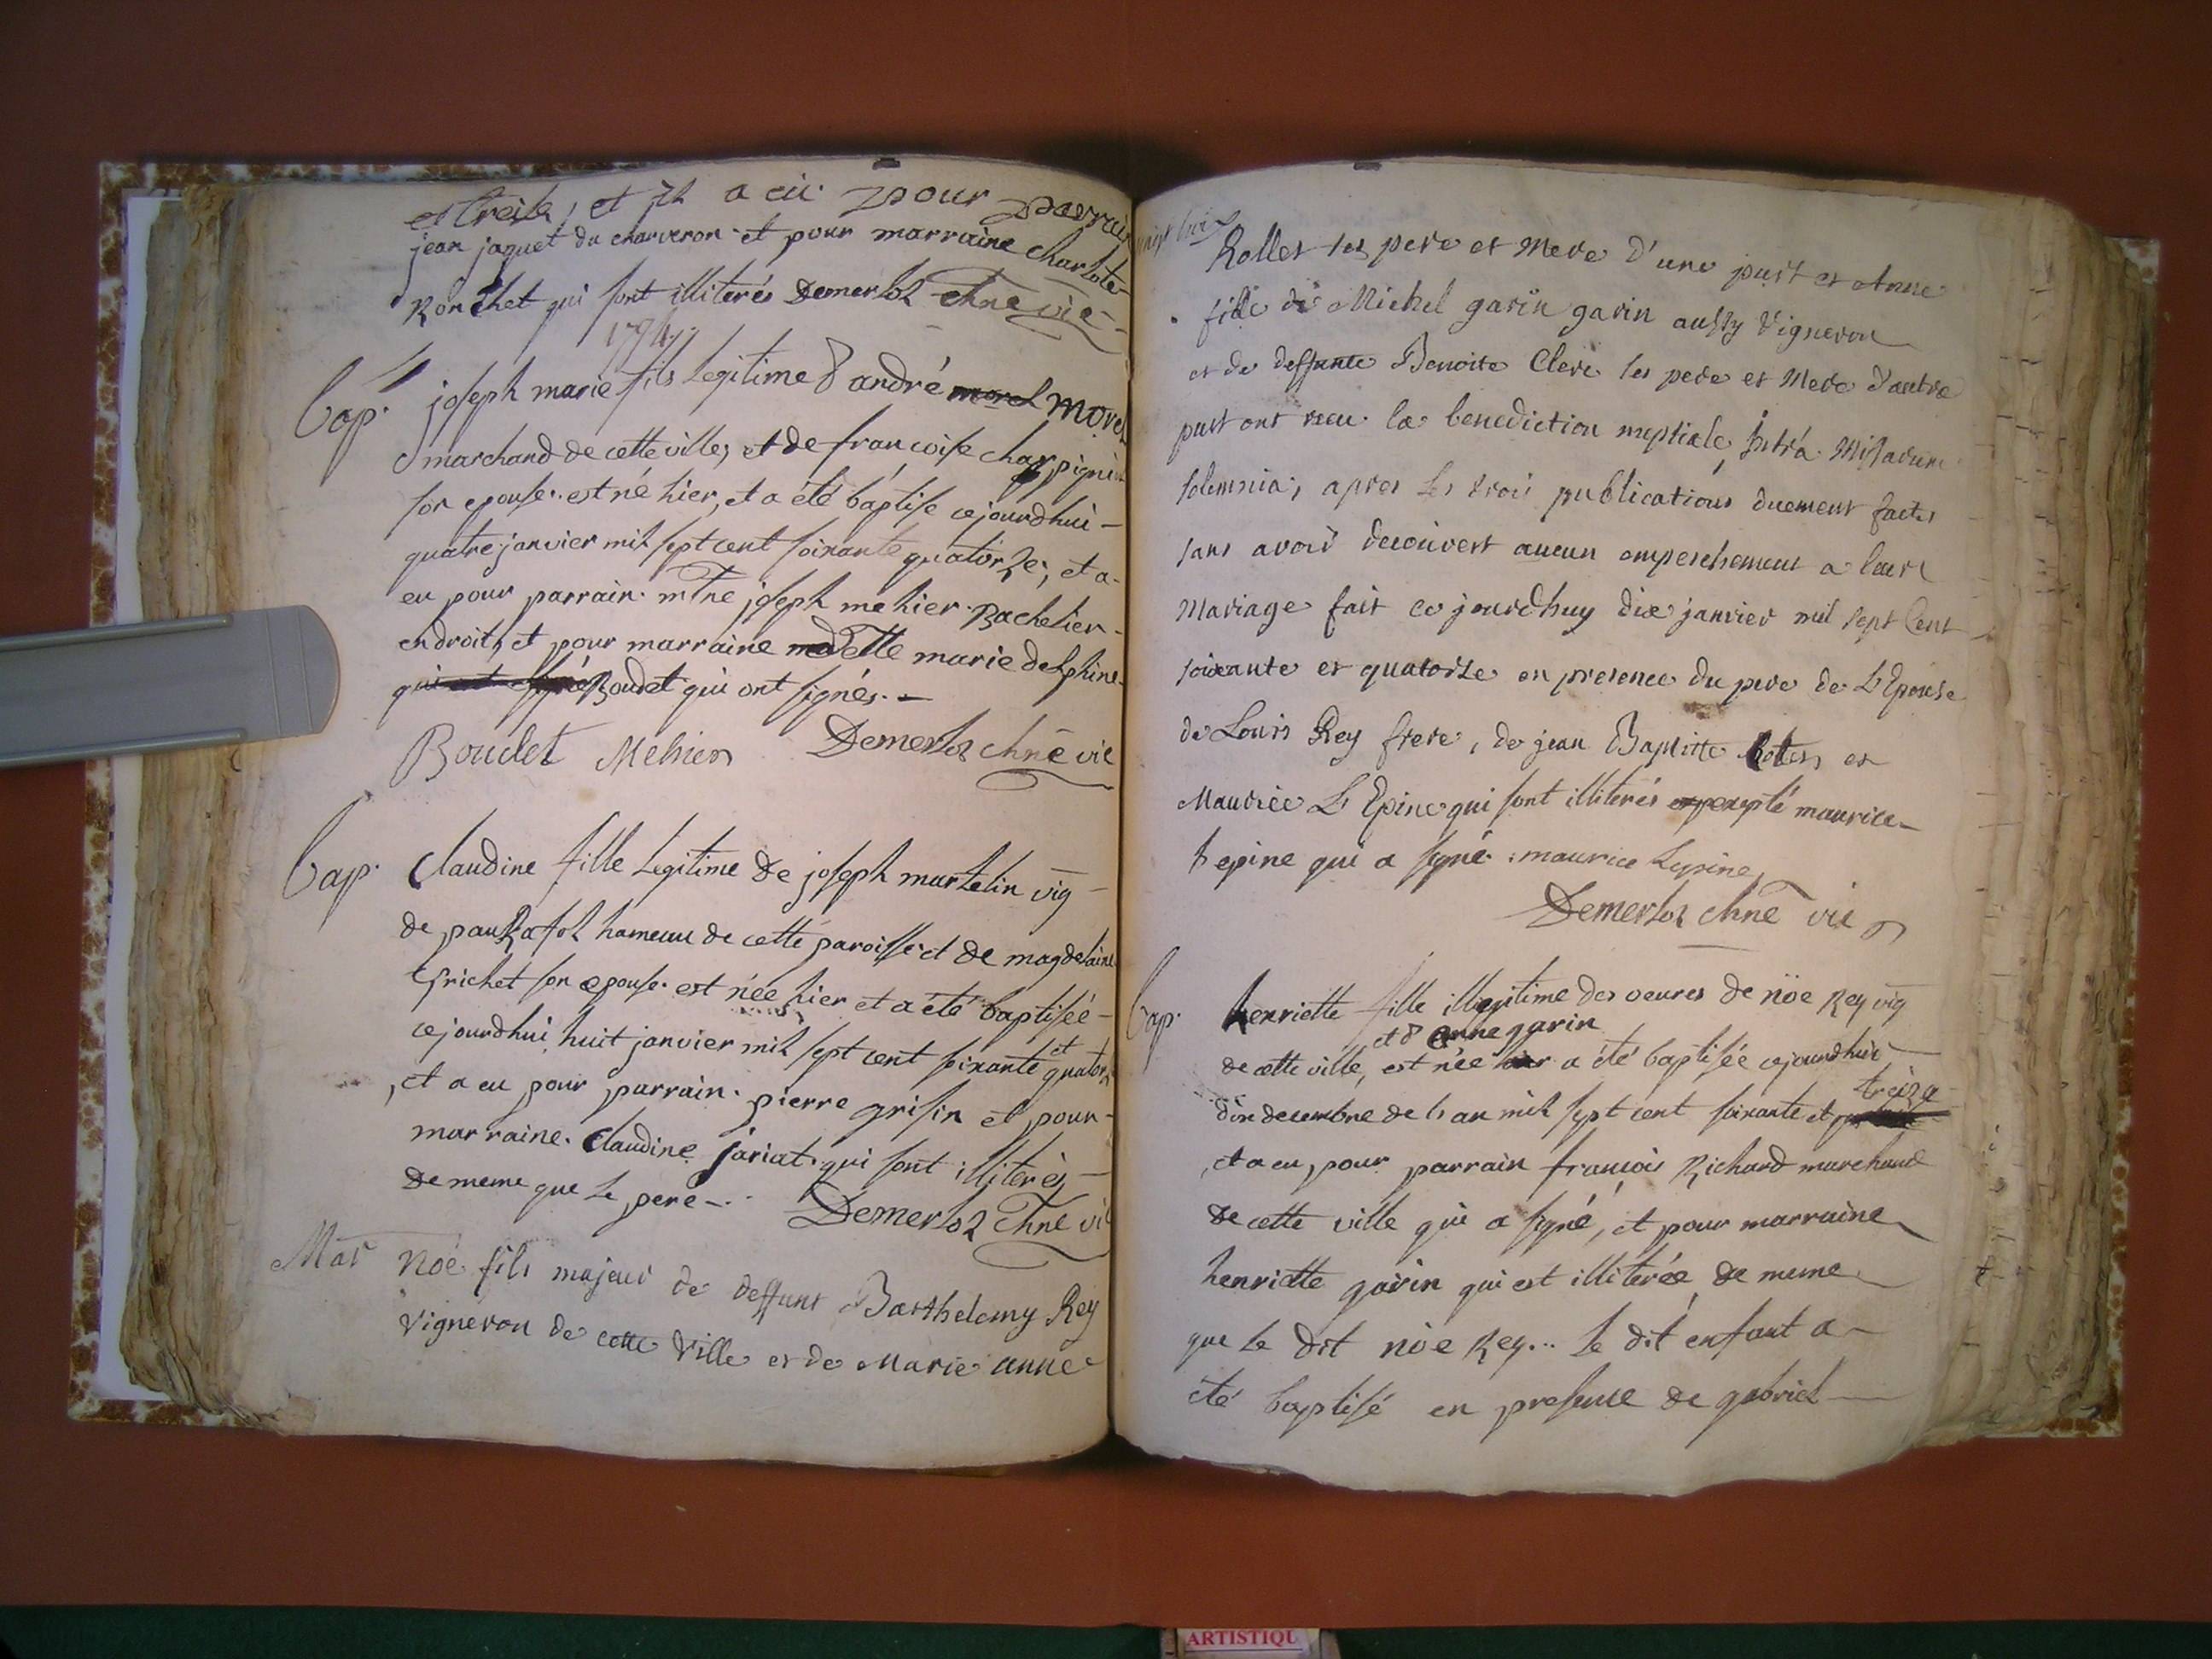 et treize, et il a eü pour parrain
jean jaquet du charveron et pour marraine charlote
Ronchet qui sont illiterés Demerloz chne vic
1774
Bap. joseph marie fils legitime d andré morel morel
marchand de cette ville, et de francoise charpignie
son epouse est né hier, et a été baptise cejourdhui
quatre janvier mil sept cent soixante quatorze, et a
eu pour parrain mtre joseph mehier Bachelier
en droit, et pour marraine madelle marie delphine
qui ont signé Boudet qui ont signés.
Boudet Mehier Demerloz chne vic
Bap. Claudine fille legitime de joseph martelin vig
de pauRafol hameau de cette paroisse et de magdelaine
Grichet son epouse est née hier et a été baptiséé
cejourdhui huit janvier mil sept cent soixante et quator
, et a eu pour parrain pierre grisin et pour
marraine. Claudine jariat qui sont illiterés
de meme que le pere Demerloz chne vic
Mar Noé fils majeur de deffunt Barthelemy Rey
Vigneron de cette Ville et de Marie anne
vingt trois
Rollet ses pere et Mere d'une part et Anne
fille de Michel garin garin aussy Vigneron
et de deffunte Benoite Clere ses pere et Mere d'autre
part ont recu la benediction nuptiale intrà Missarum
solemnia, apres les trois publications duement faites
sans avoir decouvert aucun empeschement a leur
Mariage fait ce jourdhuy dix janvier mil sept Cent
soixante et quatorze en presence du pere de L'Epouse
de Louis Rey frere, de jean Baptiste et
Maurice L'Epine qui sont illiterés excepté maurice
l'epine qui a signé : maurice Lepine
Demerloz chne vic
Bap. henriette fille illegitime des oeuvres de nöe Rey vig
et d anne garin
de cette ville, est née hier a été baptisée cejourdhui
treize
dix decembre de l'an mil sept cent soixante et
, et a eu pour parrain francois Richard marchand
de cette ville qui a signé, et pour marraine
henriette garin qui est illiterée de meme
que le dit nöe Rey... le dit enfant a
été baptisé en presence de gabriel
ARTISTIQU